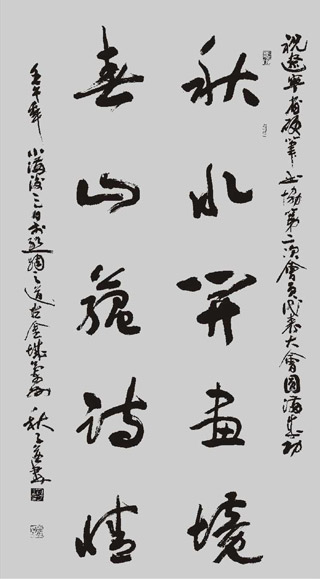 祝遼寧省硬筆書協第二次會員代表大會圓滿成功
秋水開畫境
春山詩情
壬午年小滿後三日於絲綢之道古金城蘭州秋子書